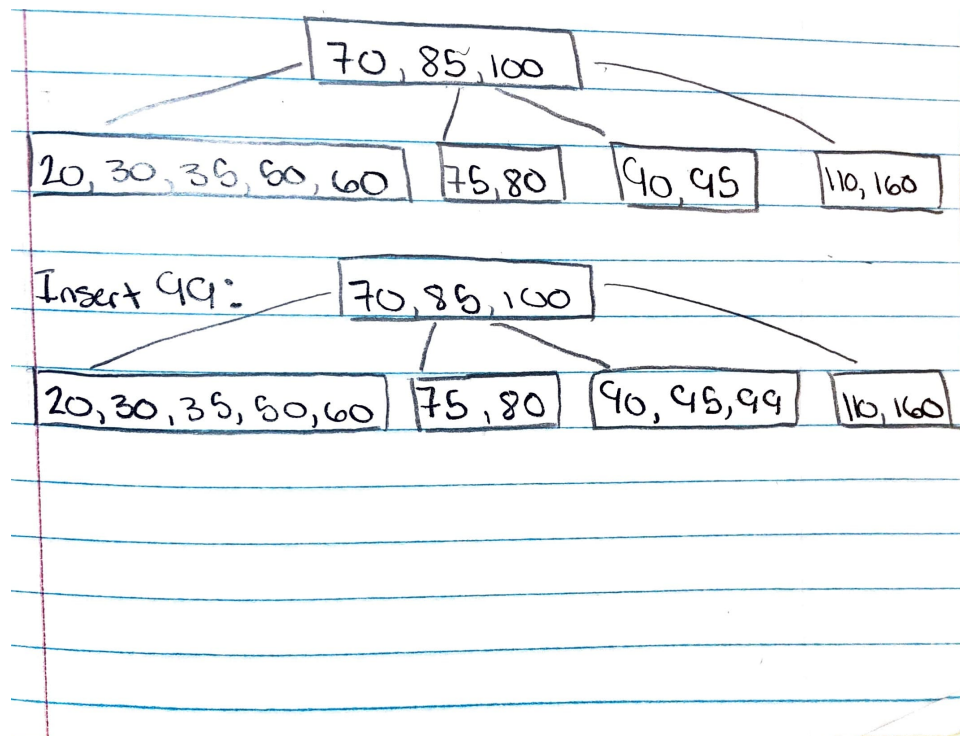 70, 85, 100
20, 30, 35, 50, 60 75, 80 90, 95 110, 160
Insert 99: 70, 85, 100
20, 30, 35, 50, 60 75, 80 90, 95, 99 110, 160